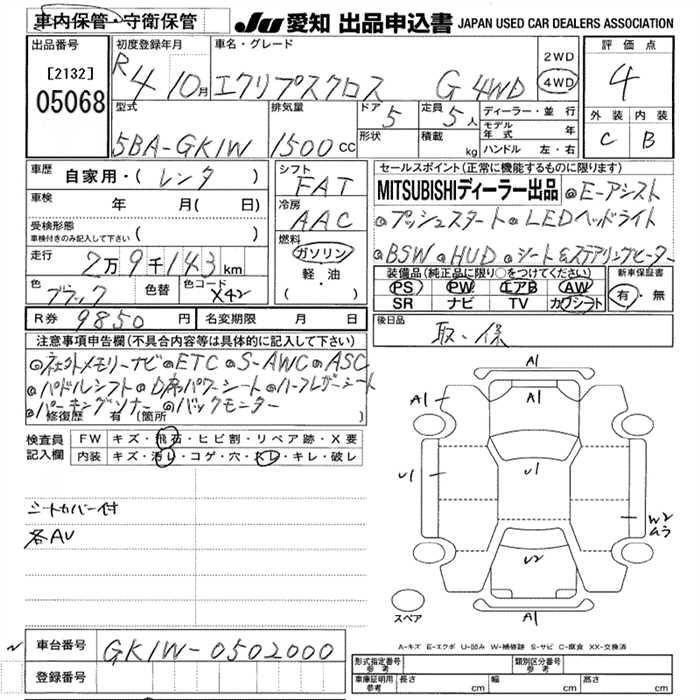 車内保管・守衛保管
JU 愛知 出品申込書 JAPAN USED CAR DEALERS ASSOCIATION
出品番号
[2132]
05068
初度登録年月
R4 10月
車名・グレード
エクリプスクロス G 4WD
2WD
4WD
評価点
4
外装 内装
C B
型式
5BA-GK1W
排気量
1500cc
ドア
5
形状
定員
5人
積載
kg
ディーラー・並行
モデル年式 年
ハンドル 左・右
車歴
自家用・(レンタ)
車検
年 月(日)
受検形態
車検付きのみ記入して下さい ( )
走行
2万9千143km
色
ブラック
色替
色コード
X42
シフト
FAT
冷房
AAC
燃料
ガソリン
軽・油
( )
セールスポイント(正常に機能するものに限ります)
MITSUBISHIディーラー出品 ◎E-アシスト
◎プッシュスタート ◎LEDヘッドライト
◎BSW ◎HUD ◎シート&ステアリングヒーター
装備品(純正品に限り○をつけてください)
PS PW エアB AW
SR ナビ TV カワシート
新車保証書
有・無
R券 9850円
名変期限 月 日
後日品
取・保
注意事項申告欄(不具合内容等は具体的に記入して下さい)
◎ネオクトメモリーナビ ◎ETC ◎S-AWC ◎ASC
◎パドルシフト ◎D席パワーシート ◎ハーフレザーシート
◎パーキングソナー ◎バックモニター
修復歴 有(箇所 )
検査員記入欄
FW キズ・飛石・ヒビ割・リペア跡・X要
内装 キズ・汚レ・コゲ・穴・スレ・キレ・破レ
シートカバー付
各AU
A1
A1
U1
U1
W2
ムラ
U2
A1
スペア
A-キズ E-エクボ U-凹み W-補修跡 S-サビ C-腐食 XX-交換済
車台番号
GK1W-0502000
登録番号
形式指定番号 参考
類別区分番号 参考
車庫証明用 参考 長さ cm 幅 cm 高さ cm